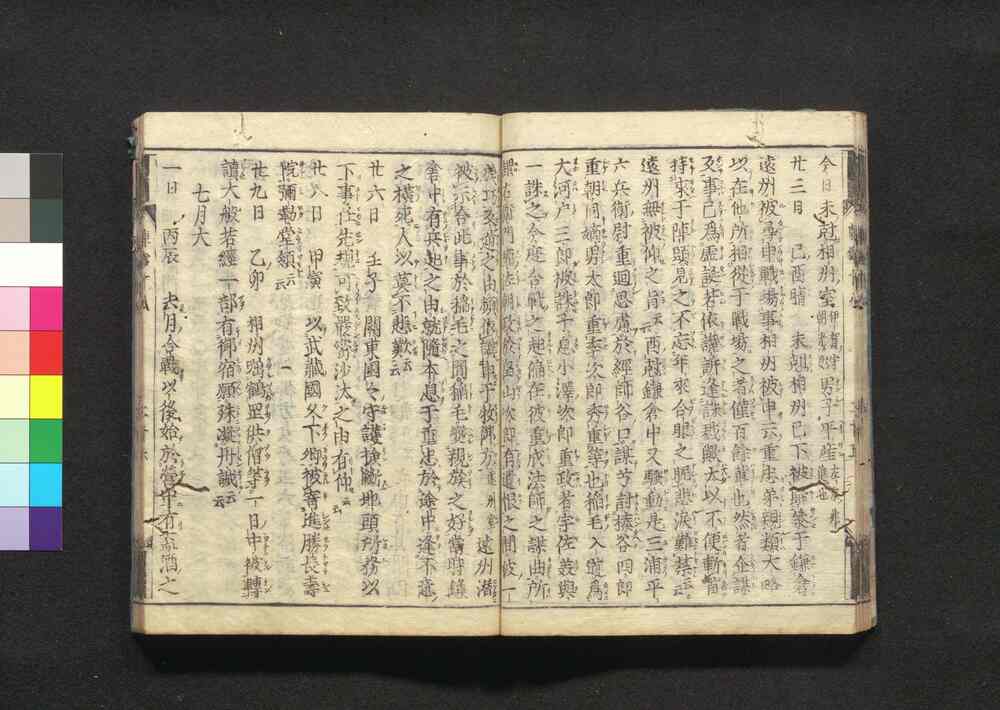 今日未尅相州室伊賀守朝光男子平産左京兆是也
廿三日 己酉晴 未尅相州已下被歸參于鎌倉
遠州被尋申戰塲事相州被申云重忠弟親類大略
以在他所相從于戰塲之者僅百餘輩也然者企謀
叛事已爲虚誕若依讒訴逢誅戮歟太以不便斬首
持來于陣頭見之不忘年來合眼之眤悲涙難禁云
遠州無被仰之旨云酉尅鎌倉中又騒動是三浦平
六兵衛尉重廻思慮於經師谷口謀苄討榛谷四郎
重朝同嫡男太郎重季次郎秀重等也稲毛入道爲
大河戸三郎被誅子息小澤次郎重政者宇佐美與
一誅之今度合戰之起偏在彼重成法師之謀曲所
謂右衛門權佐朝政於畠山次郎有遺恨之間彼一
族巧叛逆之由頻依讒申于牧御方遠州室遠州潜
被示合此事於稲毛之間稲毛變親族之好當時鎌
倉中有兵起之由就、消息于重忠於途中逢不意
之横死人以莫不悲歎云
廿六日 壬子 關東國々守護撿斷地頭所務以
下事任先規可致嚴密沙汰之由有仰云
廿八日 甲寅 以武藏國久下郷被寄進勝長壽
院弥勒堂領云
廿九日 乙卯 相州囑鶴罡供僧等一日中被轉
讀大般若經一部有御宿願殊凝丹誠云
七月大
一日 丙辰 去月合戰以後始於營中有盃酒之